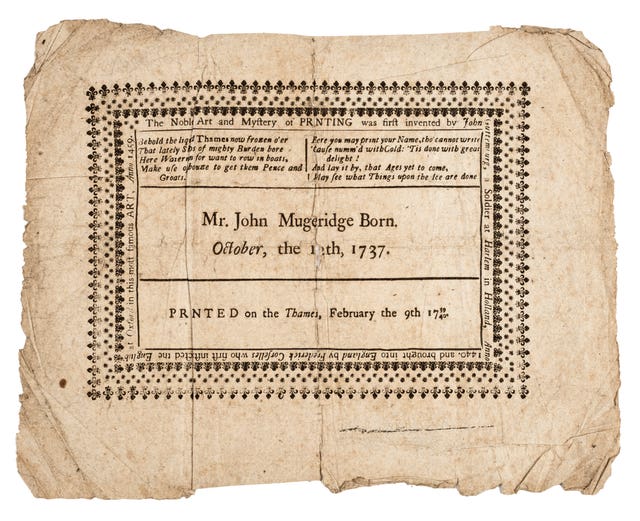 The Noble Art and Myſtery of PRNTING was firſt invented by John
Behold the liqd Thames now frozen o'er
That lately Sps of mighty Burden bore
Here Watermn for want to row in boats,
Make uſe o bouze to get them Pence and
Groats.
Here you may print your Name, tho' cannot write
'Cauſe numm'd with Cold: 'Tis done with great
delight !
And lay it by, that Ages yet to come,
May ſee what Things upon the Ice are done
Mr. John Mugeridge Born.
October, the th, 1737.
PRNTED on the Thames, February the 9th 17 39/40.
a Soldier at Harlem in Holland, Anno
1440. and brought into England by Frederick Corſelles who firſt inſtructed the Engliſh
at Oxford in this moſt famous ART, Anno 1459.